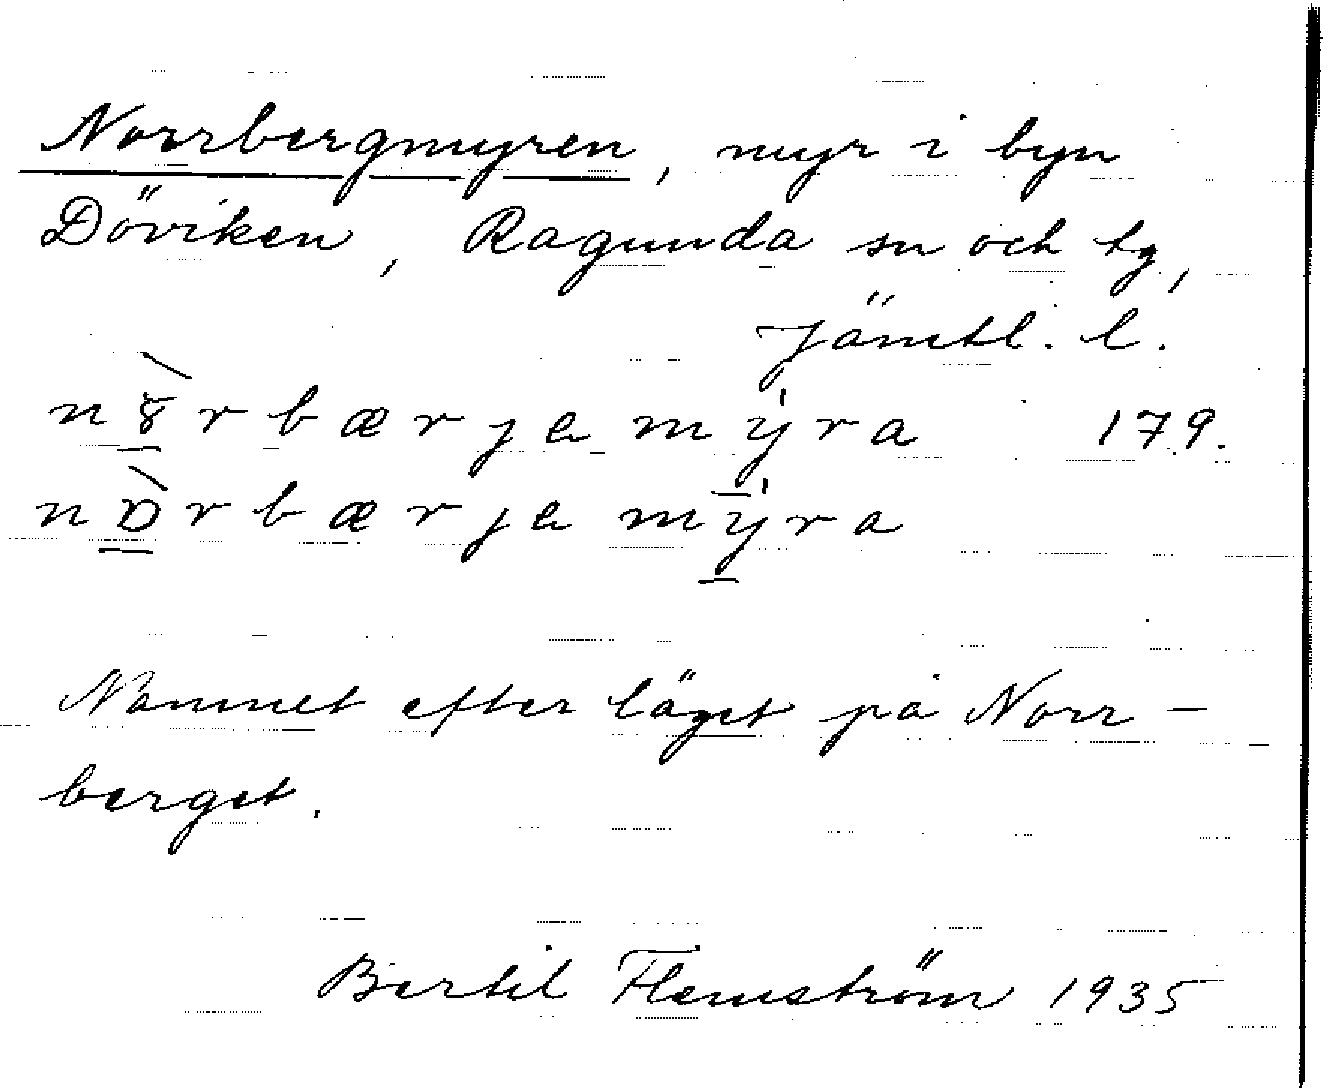 Norrbergmyren, myr i byn
Döviken, Ragunda sn och tg,
Jämtl. l.
nȣ̀rbærjemýra 179.
nɒ̀rbærjemýra
Namnet efter läget på Norr-
berget.
Bertil Flemström 1935